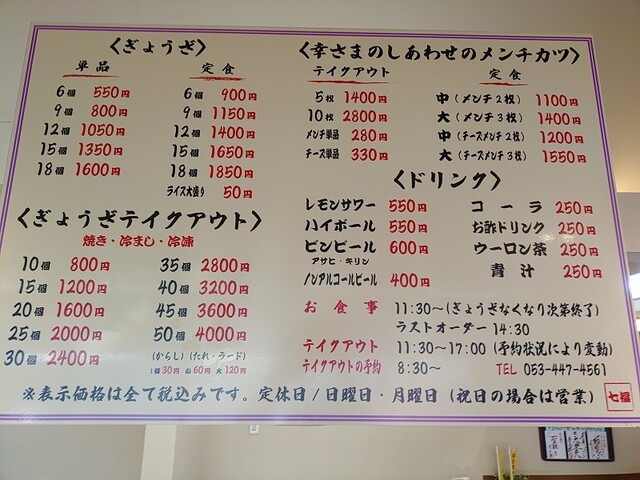 〈ぎょうざ〉
単品
6個 550円
9個 800円
12個 1050円
15個 1350円
18個 1600円
定食
6個 900円
9個 1150円
12個 1400円
15個 1650円
18個 1850円
ライス大盛り 50円
〈ぎょうざテイクアウト〉
焼き・冷まし・冷凍
10個 800円
15個 1200円
20個 1600円
25個 2000円
30個 2400円
35個 2800円
40個 3200円
45個 3600円
50個 4000円
(からし) (たれ・ラード)
1個30円 小60円 大120円
〈幸さまのしあわせのメンチカツ〉
テイクアウト
5枚 1400円
10枚 2800円
メンチ単品 280円
チーズ単品 330円
定食
中(メンチ2枚) 1100円
大(メンチ3枚) 1400円
中(チーズメンチ2枚) 1200円
大(チーズメンチ3枚) 1550円
〈ドリンク〉
レモンサワー 550円
ハイボール 550円
ビンビール 600円
アサヒ・キリン
ノンアルコールビール 400円
コーラ 250円
お酢ドリンク 250円
ウーロン茶 250円
青汁 250円
お食事 11:30〜(ぎょうざなくなり次第終了)
ラストオーダー 14:30
テイクアウト 11:30〜17:00 (予約状況により変動)
テイクアウトの予約 8:30〜 TEL 053-447-4561
※表示価格は全て税込みです。定休日/日曜日・月曜日(祝日の場合は営業)
七福